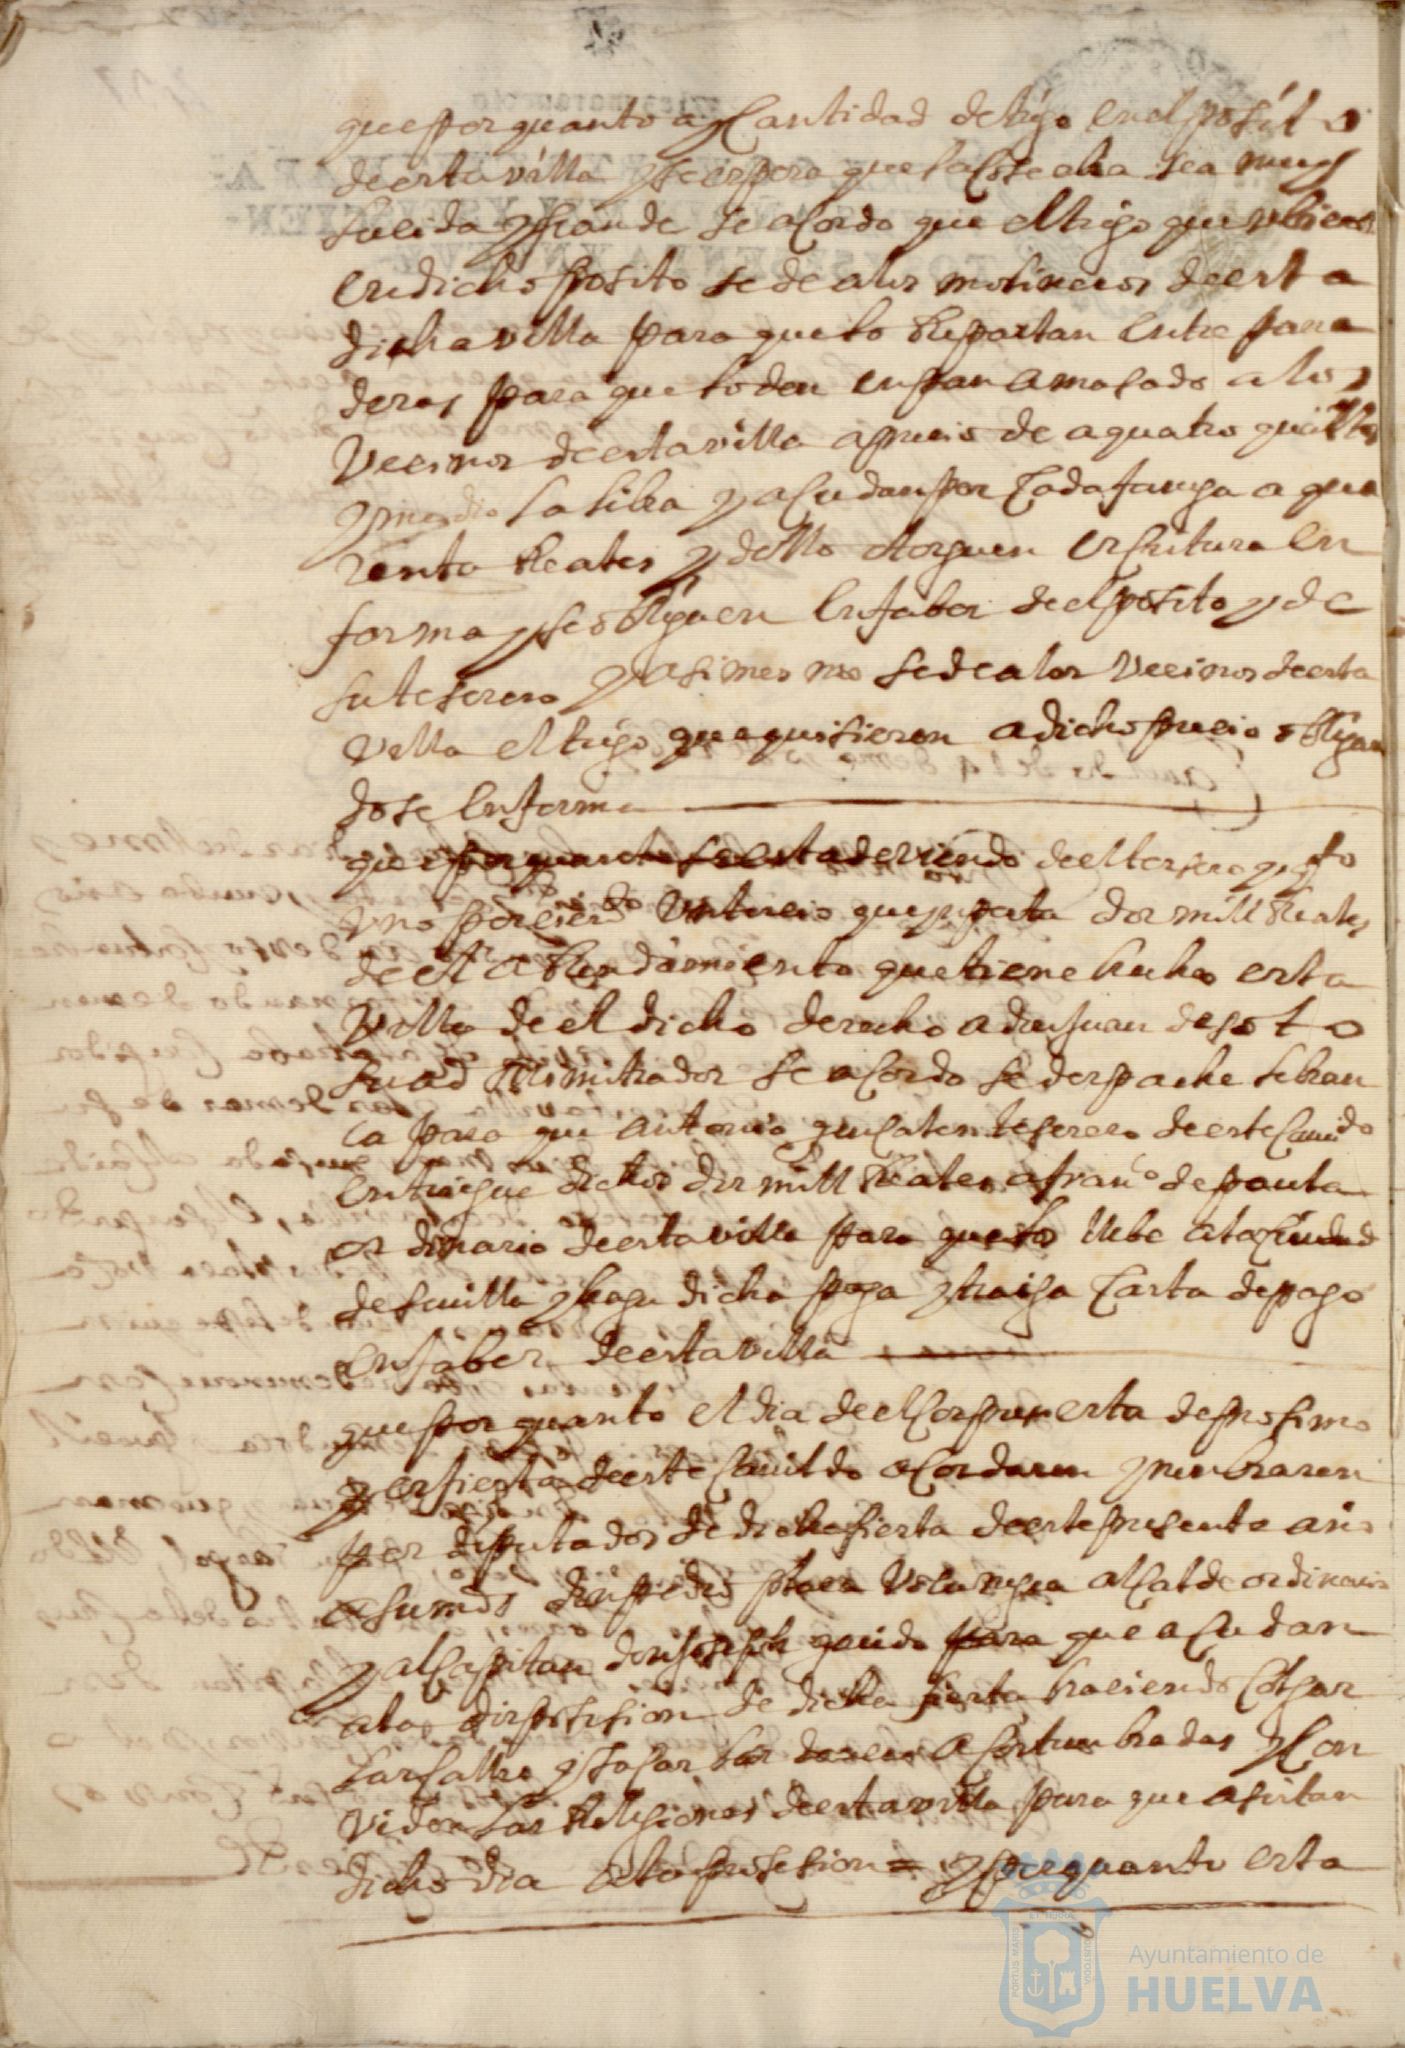 que por quanto ay Cantidad de trigo en el posito
de esta villa y se espera que la Cosecha sea muy
lucida y grande se acordo que el trigo que ubiere
en dicho posito se de a los molineros de esta
dicha villa para que lo Repartan entre pana
deras para que lo den en pan amasado a los
Vecinos de esta villa a precio de a quatro quartos
y medio la libra y acudan por Cada fanega a qua
renta Reales y dello otorguen escritura en
forma y se obliguen en fabor de el posito y de
su tesorero y asimesmo se de a los Vecinos de esta
villa el trigo que quisieren a dicho precio obligan
dose en forma
que por quanto se esta deviendo de el tersero
uno por ciento Un tercio que ynporta dos mill Reales
de el aRendamiento que tiene hecho esta
Villa de el dicho derecho a don Juan de soto
su administrador se acordo se despache libran
ca para que antonio gonsales tesorero de este Cauildo
entriegue dichos dos mill Reales a franco de
ordinario de esta villa para que los llebe a la Ciudad
de seuilla y haga dicha paga y traiga Carta de pago
en faber de esta villa
que por quanto el dia de el Corpus esta de prosimo
y es fiesta de este Cauildo acordaron y nonbraron
por diputados de dicha fiesta de este presente año
a sus mds don pedro alcalde ordinario
y al Capitan don Joseph garrido para que acudan
a la disposision de dicha fiesta haciendo Colgar
las Calles y sacar las acostumbradas y Con
vidar las Religiones de esta villa para que asistan
dicho dia a la prosesion = y por quanto esta
Ayuntamiento de
HUELVA